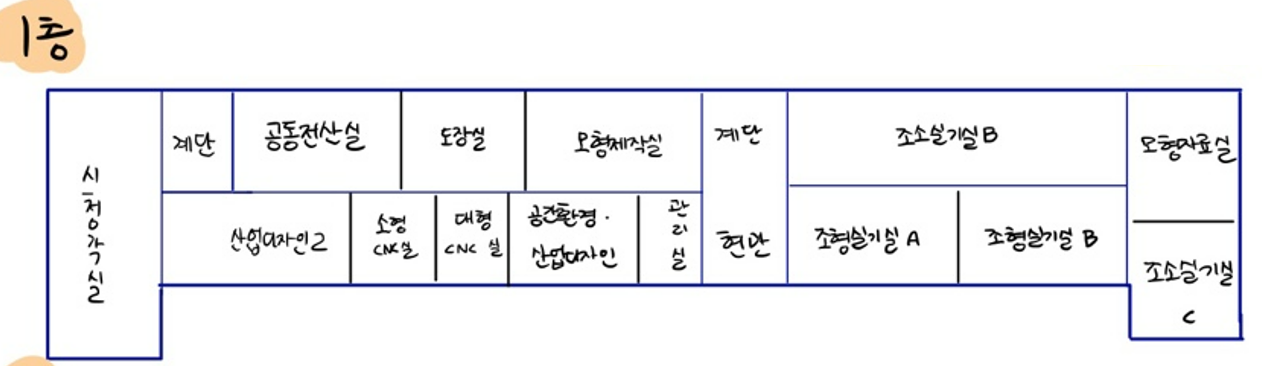 1층
시청각실
계단
공동전산실
도장실
모형제작실
계단
조소실기실 B
모형자료실
산업디자인 2
소형
CNC실
대형
CNC 실
공간환경·
산업디자인
관리실
현관
조형실기실 A
조형실기실 B
조소실기실
C